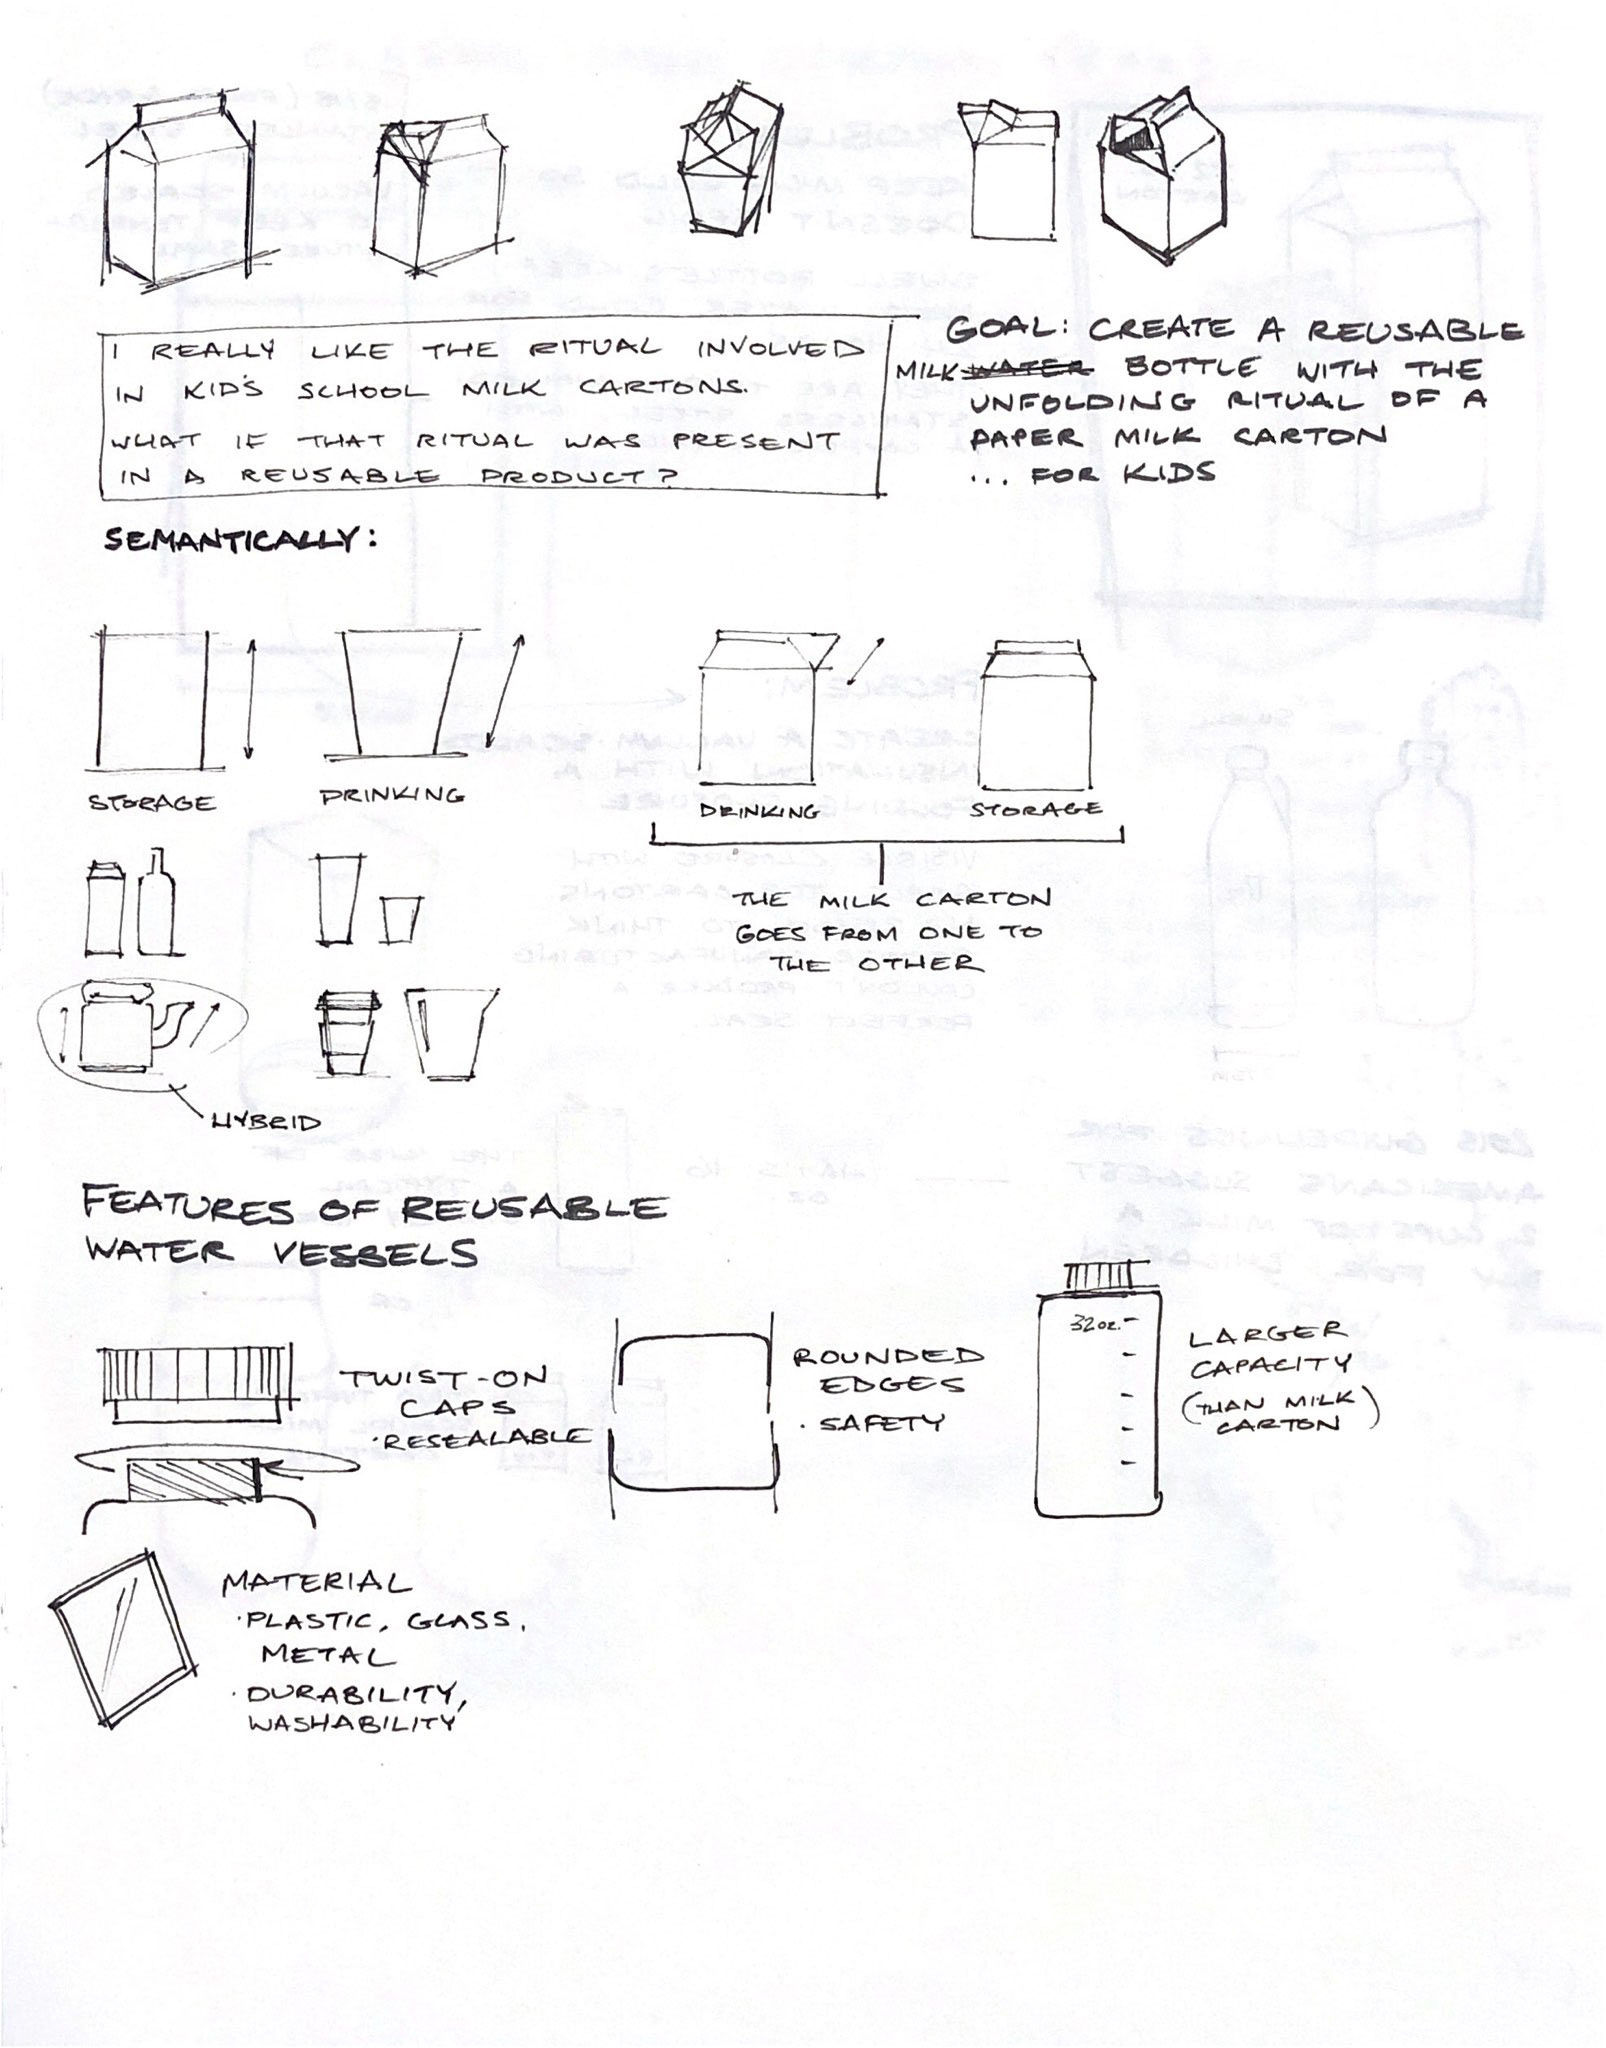 I REALLY LIKE THE RITUAL INVOLVED
IN KID'S SCHOOL MILK CARTONS.
WHAT IF THAT RITUAL WAS PRESENT
IN A REUSABLE PRODUCT?
GOAL: CREATE A REUSABLE
MILK WATER BOTTLE WITH THE
UNFOLDING RITUAL OF A
PAPER MILK CARTON
... FOR KIDS
SEMANTICALLY:
STORAGE
DRINKING
DRINKING
STORAGE
THE MILK CARTON
GOES FROM ONE TO
THE OTHER
HYBRID
FEATURES OF REUSABLE
WATER VESSELS
TWIST-ON
CAPS
·RESEALABLE
ROUNDED
EDGES
·SAFETY
32oz.
LARGER
CAPACITY
(THAN MILK
CARTON)
MATERIAL
·PLASTIC, GLASS,
METAL
·DURABILITY,
WASHABILITY